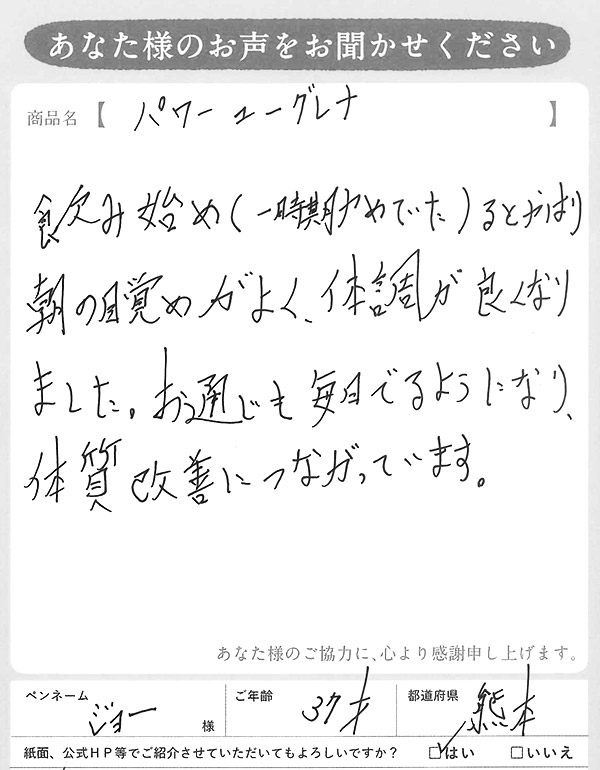 あなた様のお声をお聞かせください
商品名【 パワーユーグレナ 】
飲み始め(一時期やめていた)るとやはり
朝の目覚めがよく、体調が良くなり
ました。お通じも毎日でるようになり、
体質改善につながっています。
あなた様のご協力に、心より感謝申し上げます。
ペンネーム ジョー 様 ご年齢 37才 都道府県 熊本
紙面、公式HP等でご紹介させていただいてもよろしいですか? ☑はい □いいえ